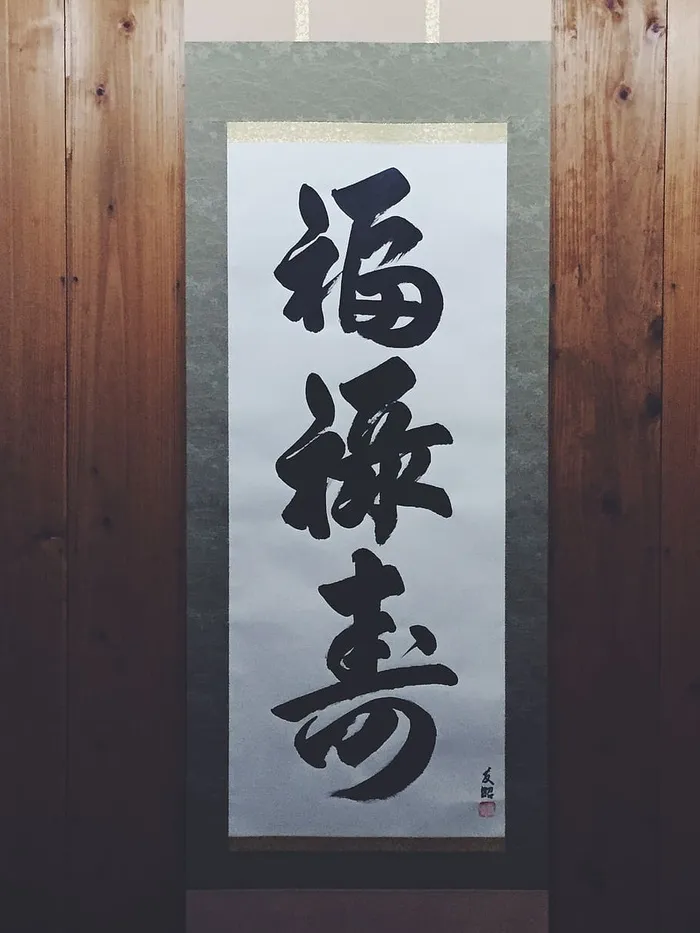 福禄寿
友昭